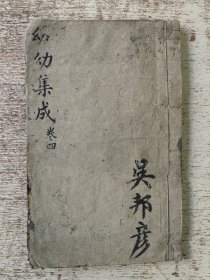 幼幼集成
卷四
吳邦彦